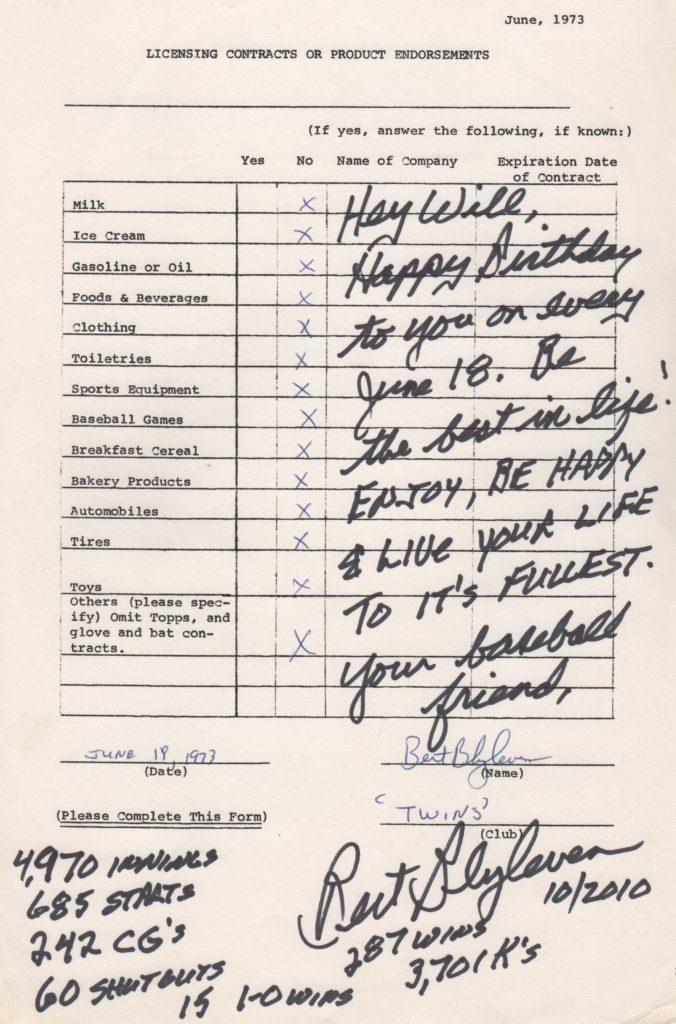 June, 1973
LICENSING CONTRACTS OR PRODUCT ENDORSEMENTS
(If yes, answer the following, if known:)
Yes No Name of Company Expiration Date
of Contract
Milk X Hey Will,
Ice Cream X
Gasoline or Oil X Happy Birthday
Foods & Beverages X to you on every
Clothing X
Toiletries X June 18. Be
Sports Equipment X
Baseball Games X the best in life!
Breakfast Cereal X
Bakery Products X ENJOY, BE HAPPY
Automobiles X
Tires X & LIVE YOUR LIFE
Toys X TO IT'S FULLEST.
Others (please spec-
ify) Omit Topps, and
glove and bat con- X
tracts.
Your baseball
friend,
JUNE 18, 1973 Bert Blyleven
(Date) (Name)
(Please Complete This Form) "TWINS"
(Club)
4,970 INNINGS
685 STARTS
242 CG'S
60 SHUTOUTS
15 1-0 WINS
Bert Blyleven
10/2010
287 WINS
3,701 K's